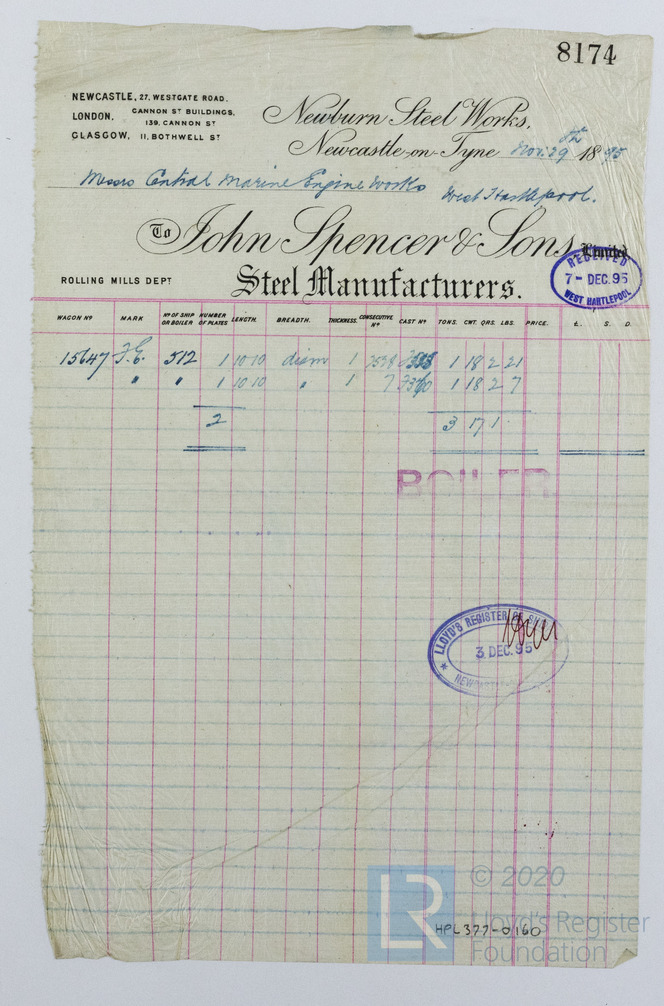 8174
NEWCASTLE, 27, WESTGATE ROAD.
LONDON. CANNON ST BUILDINGS, 139, CANNON ST
GLASGOW, 11, BOTHWELL ST
Newburn Steel Works,
Newcastle-on-Tyne Nov. 29th 1895
Messrs Central Marine Engine Works West Hartlepool.
To John Spencer & Sons, Limited
Steel Manufacturers.
ROLLING MILLS DEPT
RECEIVED
7- DEC. 95
WEST HARTLEPOOL
WAGON Nº MARK Nº OF SHIP OR BOILER NUMBER OF PLATES LENGTH. BREADTH. THICKNESS. CONSECUTIVE Nº CAST Nº TONS. CWT. QRS. LBS. PRICE. £. S. D.
15647 J.E. 512 1 10 10 diam 1 1 18 2 21
" " 1 10 10 " 1 7 1 18 2 7
2 3 17 1
BOILER
LLOYD'S REGISTER OF
3 DEC. 95
LR
© 2020
Lloyd's Register
Foundation
HPL377-0160